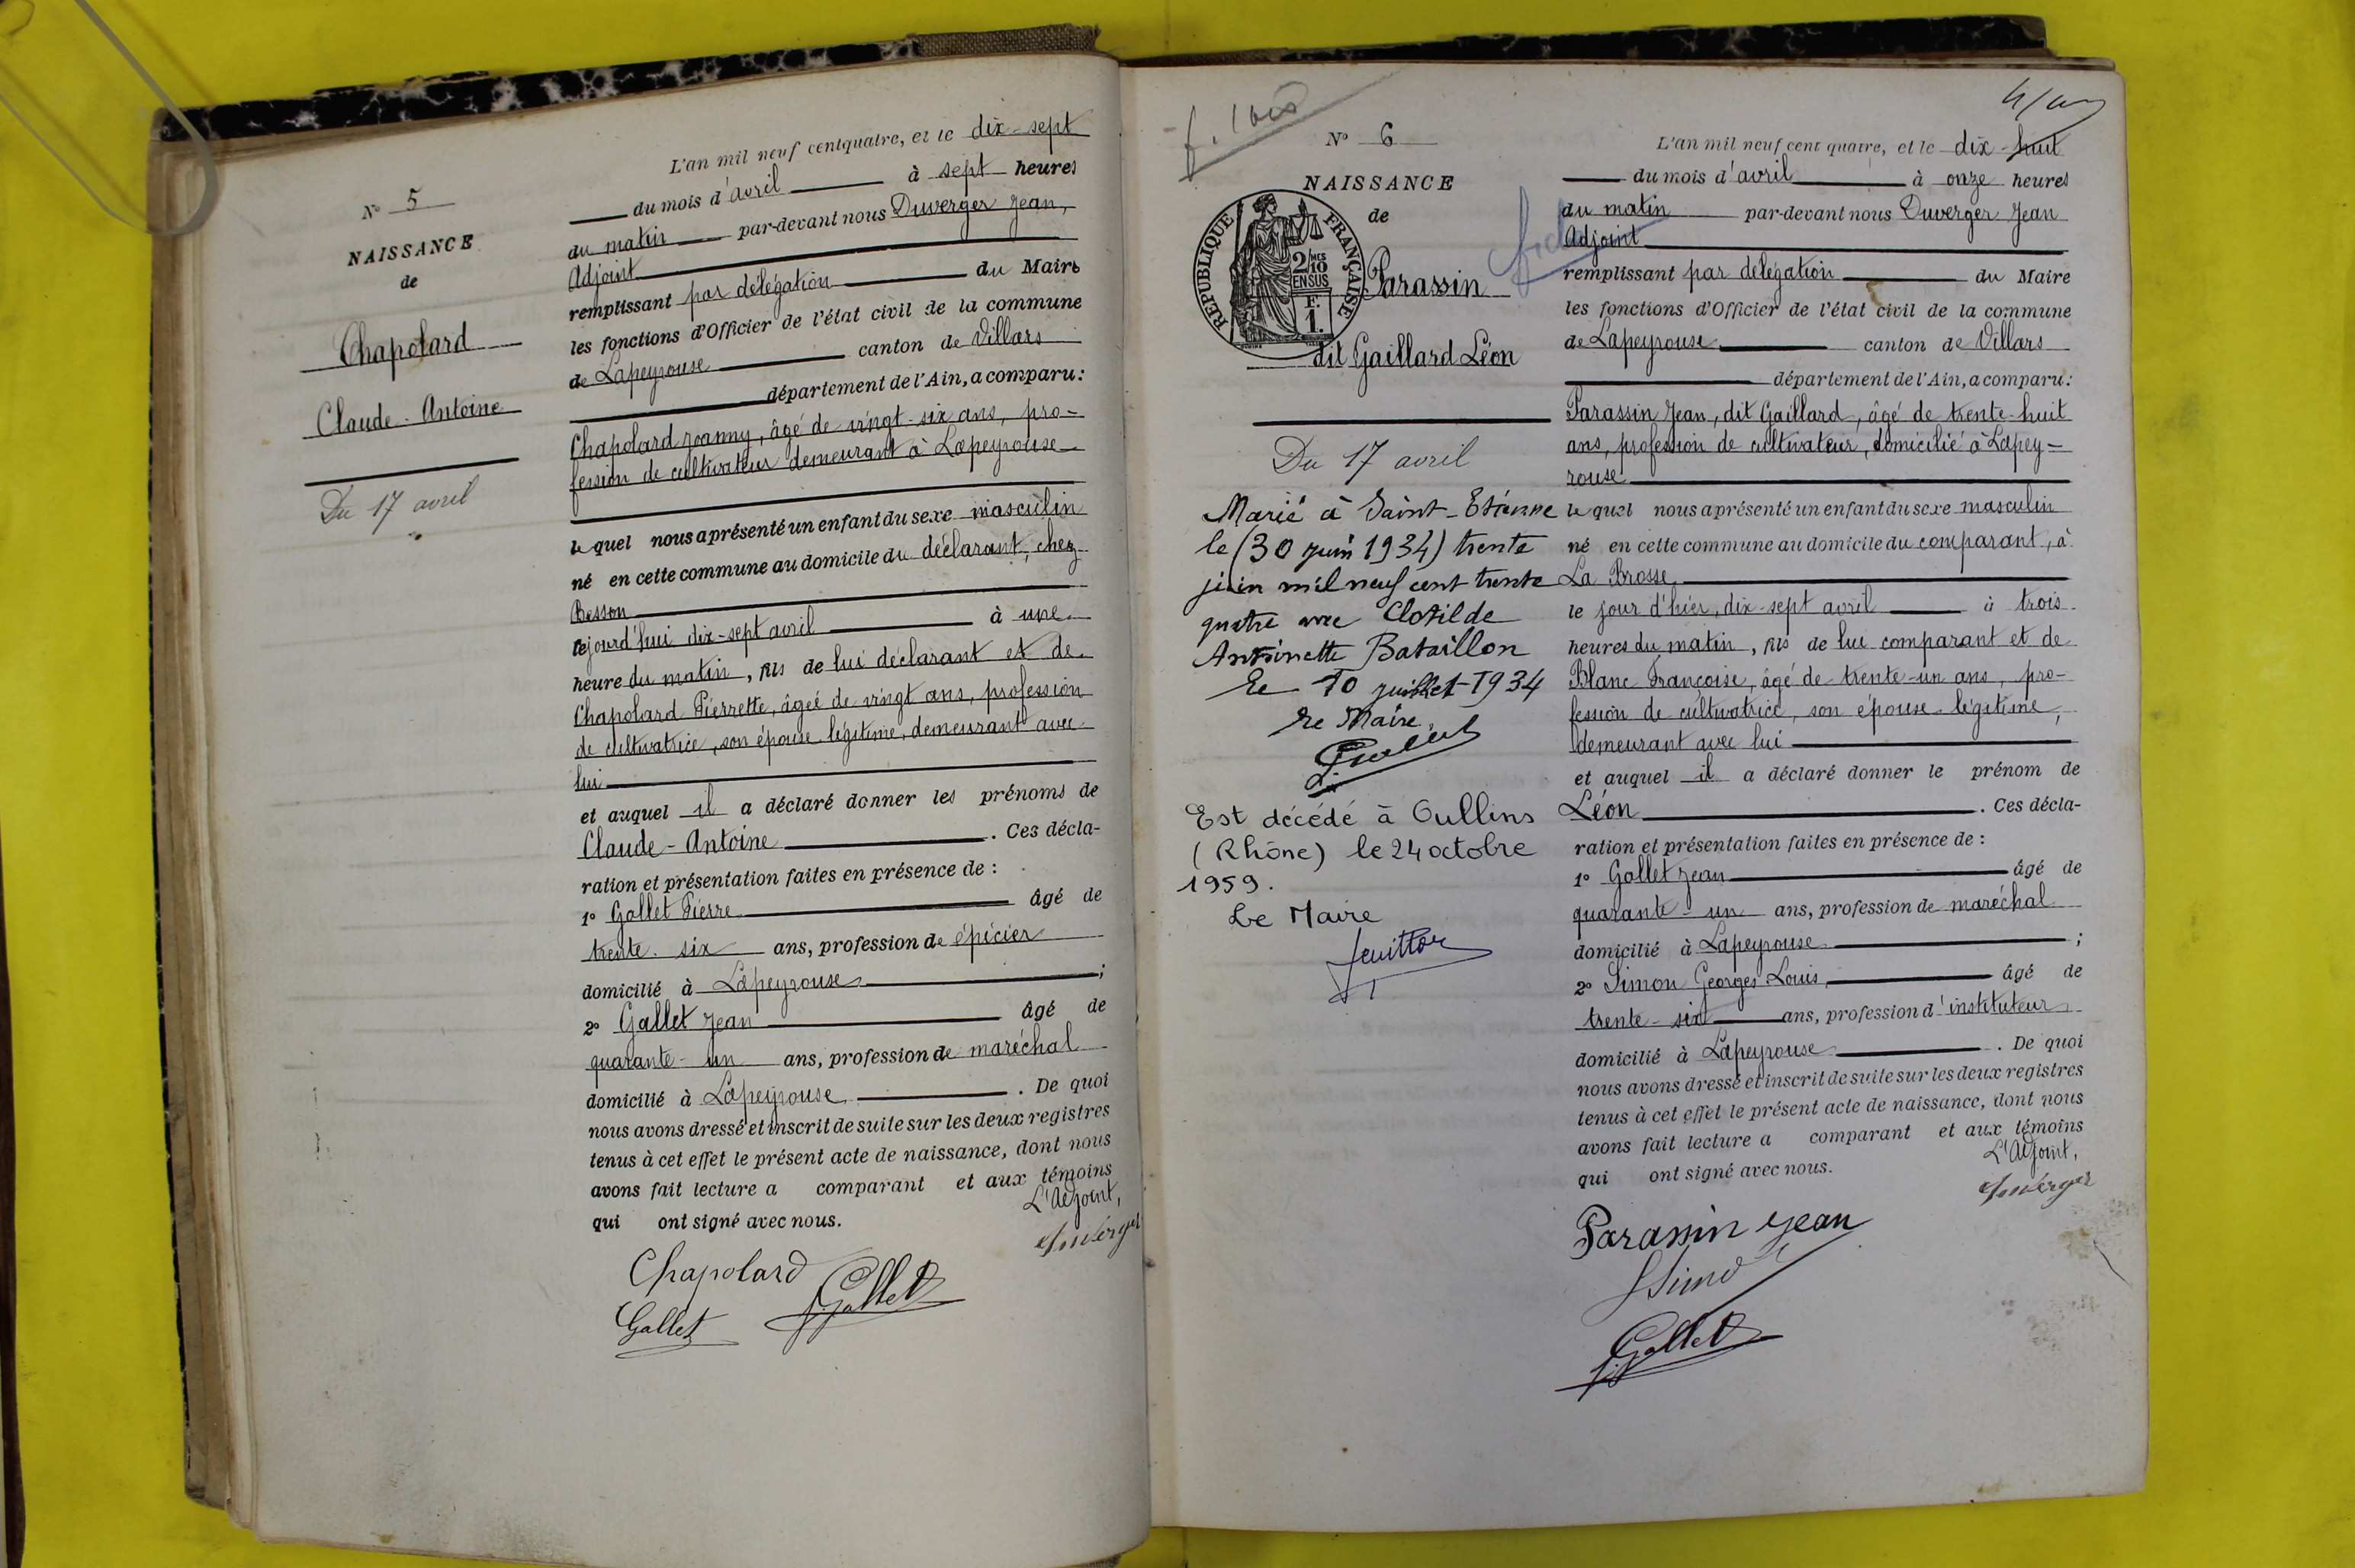 N° 5
NAISSANCE
de
Chapolard
Claude-Antoine
Du 17 avril
L'an mil neuf cent quatre, et le dix-sept
du mois d'avril à sept heures
du matin par-devant nous Duverger Jean,
Adjoint
remplissant par délégation du Maire
les fonctions d'Officier de l'état civil de la commune
de Lapeyrouse canton de Villars
département de l'Ain, a comparu:
Chapolard Joanny, âgé de vingt-six ans, pro-
fession de cultivateur demeurant à Lapeyrouse
lequel nous a présenté un enfant du sexe masculin
né en cette commune au domicile du déclarant, chez
Besson
lejourd'hui dix-sept avril à une
heure du matin, fils de lui déclarant et de
Chapolard Pierrette, âgée de vingt ans, profession
de cultivatrice, son épouse légitime, demeurant avec
lui
et auquel il a déclaré donner les prénoms de
Claude-Antoine. Ces décla-
ration et présentation faites en présence de :
1° Gallet Pierre âgé de
trente-six ans, profession de épicier
domicilié à Lapeyrouse ;
2° Gallet Jean âgé de
quarante-un ans, profession de maréchal
domicilié à Lapeyrouse. De quoi
nous avons dressé et inscrit de suite sur les deux registres
tenus à cet effet le présent acte de naissance, dont nous
avons fait lecture a comparant et aux témoins
qui ont signé avec nous.
L'Adjoint,
Duverger
Chapolard
Gallet
J. Gallet
N° 6
NAISSANCE
de
RÉPUBLIQUE FRANÇAISE
2/10 MES
EN SUS
F.
1.
Parassin
dit Gaillard Léon
Du 17 avril
Marié à Saint-Etienne
le (30 juin 1934) trente
juin mil neuf cent trente
quatre avec Clotilde
Antoinette Bataillon
Le 10 juillet 1934
Le Maire,
Est décédé à Oullins
(Rhône) le 24 octobre
1959.
Le Maire
L'an mil neuf cent quatre, et le dix-huit
du mois d'avril à onze heures
du matin par-devant nous Duverger Jean
Adjoint
remplissant par délégation du Maire
les fonctions d'Officier de l'état civil de la commune
de Lapeyrouse canton de Villars
département de l'Ain, a comparu:
Parassin Jean, dit Gaillard, âgé de trente-huit
ans, profession de cultivateur, domicilié à Lapey=
rouse
lequel nous a présenté un enfant du sexe masculin
né en cette commune au domicile du comparant, à
La Brosse
le jour d'hier, dix-sept avril à trois
heures du matin, fils de lui comparant et de
Blanc Françoise, âgé de trente-un ans, pro-
fession de cultivatrice, son épouse légitime,
demeurant avec lui
et auquel il a déclaré donner le prénom de
Léon. Ces décla-
ration et présentation faites en présence de :
1° Gallet Jean âgé de
quarante-un ans, profession de maréchal
domicilié à Lapeyrouse ;
2° Simon Georges Louis âgé de
trente-six ans, profession d'instituteur
domicilié à Lapeyrouse. De quoi
nous avons dressé et inscrit de suite sur les deux registres
tenus à cet effet le présent acte de naissance, dont nous
avons fait lecture a comparant et aux témoins
qui ont signé avec nous.
L'Adjoint,
Duverger
Parassin Jean
Simon
J. Gallet